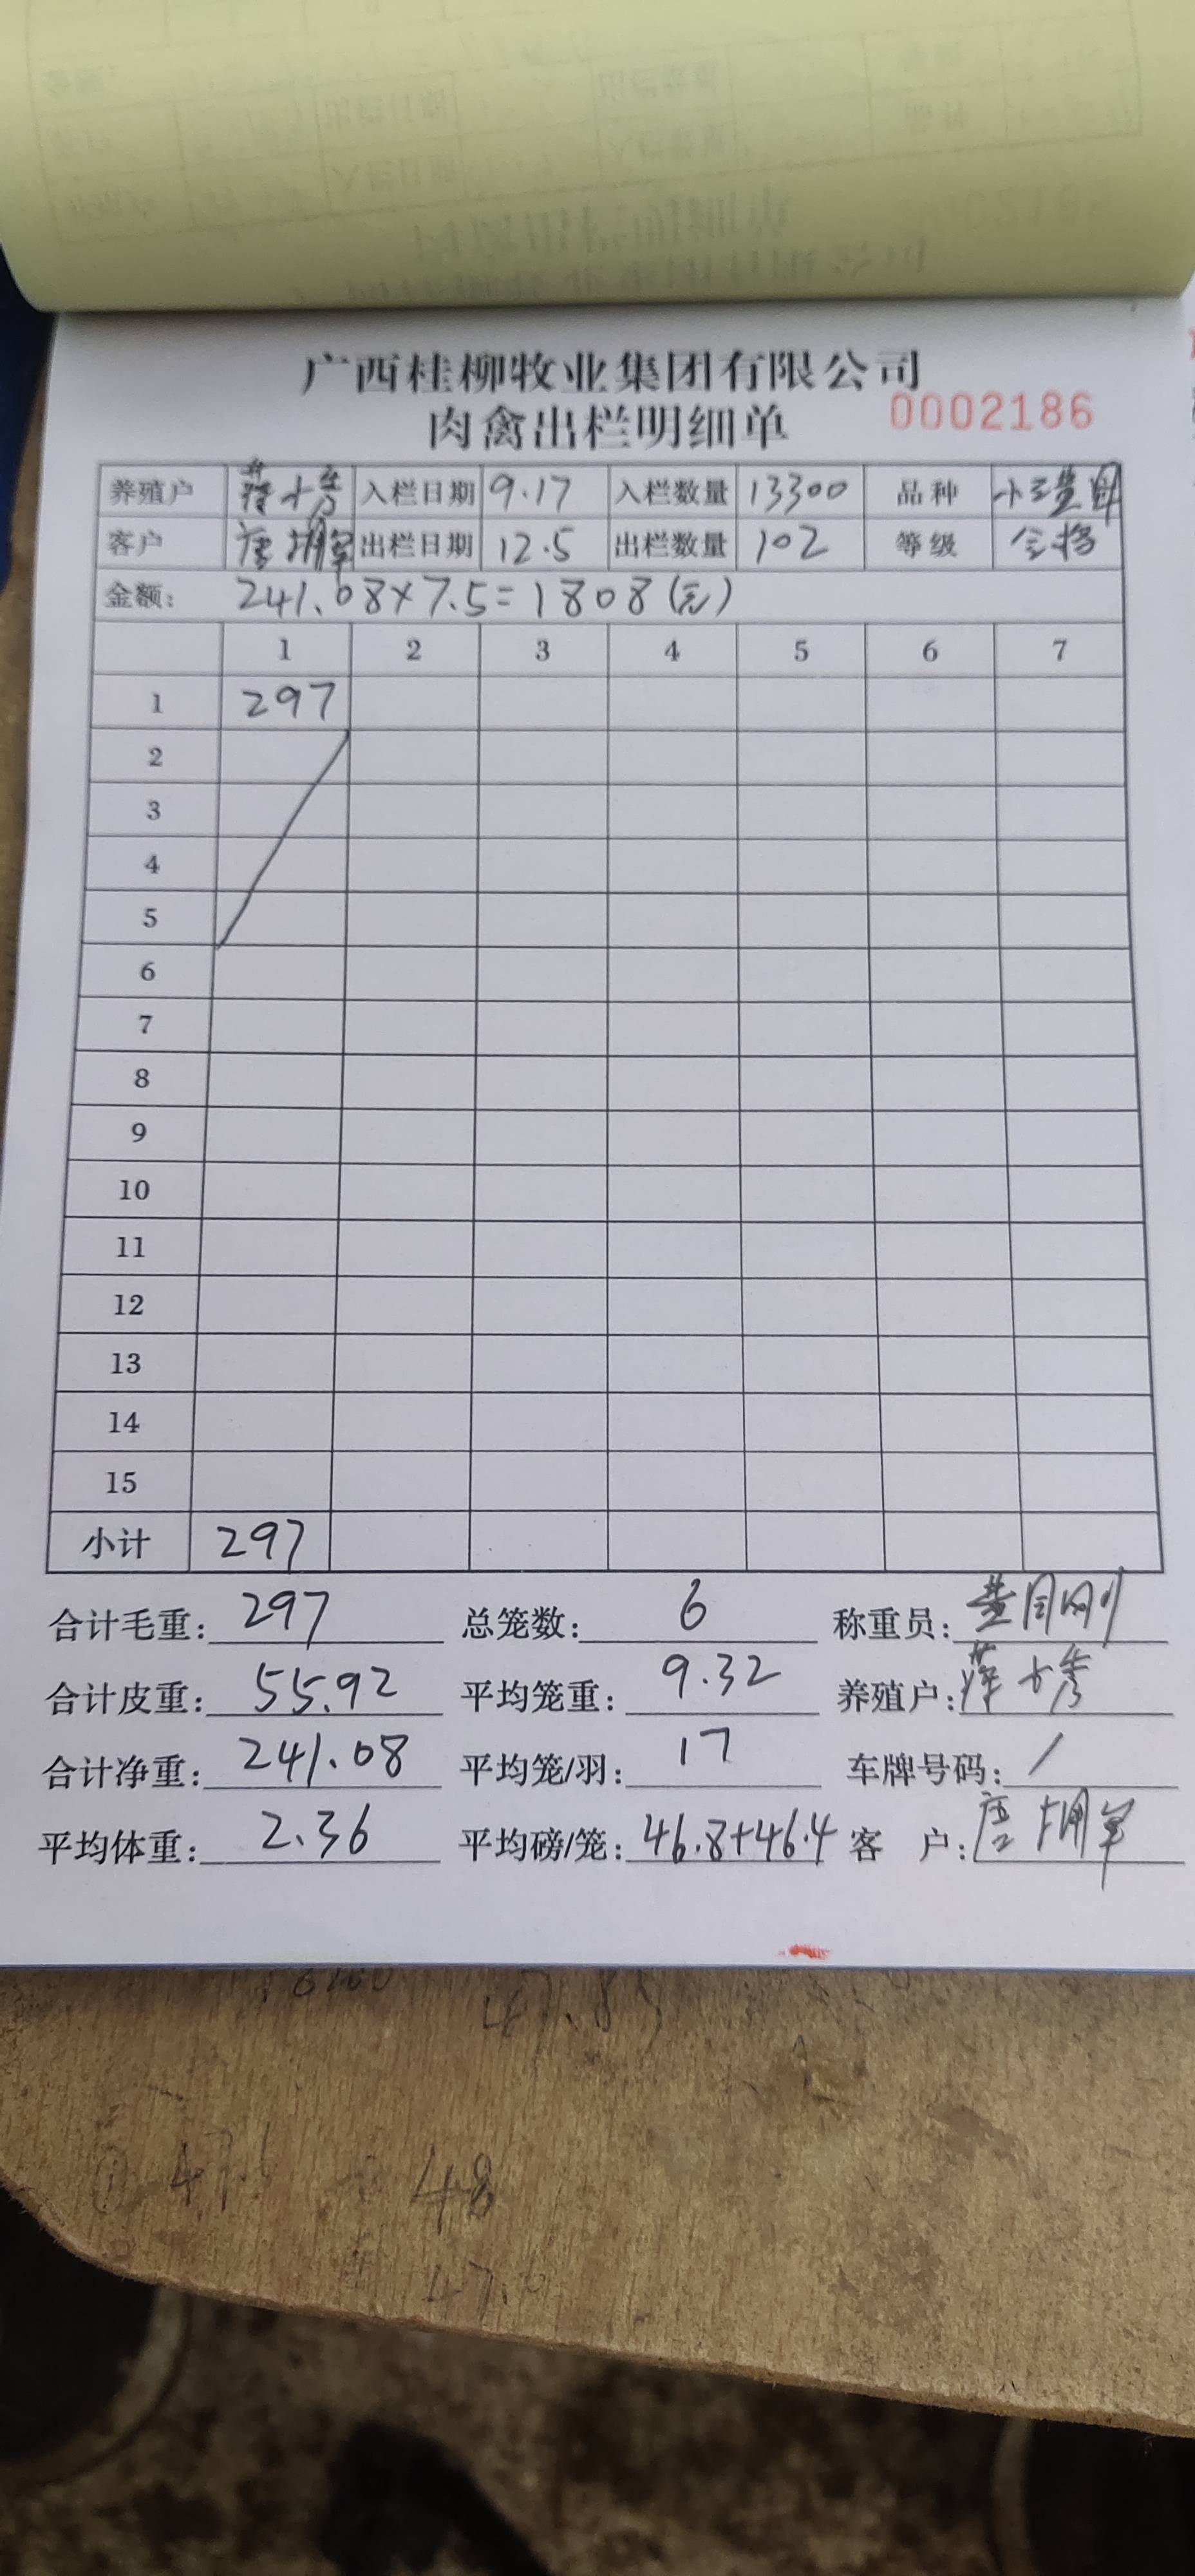 广西桂柳牧业集团有限公司
肉禽出栏明细单 0002186
养殖户 入栏日期 9.17 入栏数量 13300 品种
客户 唐 出栏日期 12.5 出栏数量 102 等级 合格
金额: 241.08×7.5=1808(元)
1 2 3 4 5 6 7
1 297
2
3
4
5
6
7
8
9
10
11
12
13
14
15
小计 297
合计毛重: 297 总笼数: 6 称重员:
合计皮重: 55.92 平均笼重: 9.32 养殖户:
合计净重: 241.08 平均笼/羽: 17 车牌号码: /
平均体重: 2.36 平均磅/笼: 46.8+46.4 客户: 唐
48